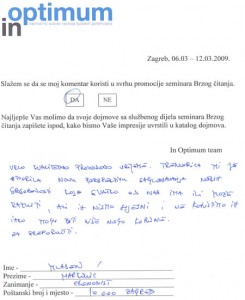 optimum
in
Zagreb, 06.03 – 12.03.2009.
Slažem se da se moj komentar koristi u svrhu promocije seminara Brzog čitanja.
DA NE
Najljepše Vas molimo da svoje dojmove sa službenog dijela seminara Brzog
čitanja zapišete ispod, kako bismo Vaše impresije uvrstili u katalog dojmova.
In Optimum team
VRLO KVALITETNO PROVEDENO VRIJEME. TRENERICA MI JE
OTVORILA NOVU PERSPEKTIVU SAGLEDAVANJA NAŠIH
SPOSOBNOSTI KOJE SVATKO OD NAS IMA ILI MOŽE
RAZVITI, ALI IH NISMO SVJESNI I NE KORISTIMO IH
IAKO MOGU BITI VEĆE NEGO
Ime - MLADEN
Prezime -
Zanimanje - EKONOMIST
Poštanski broj i mjesto - 10 000 ZAGREB